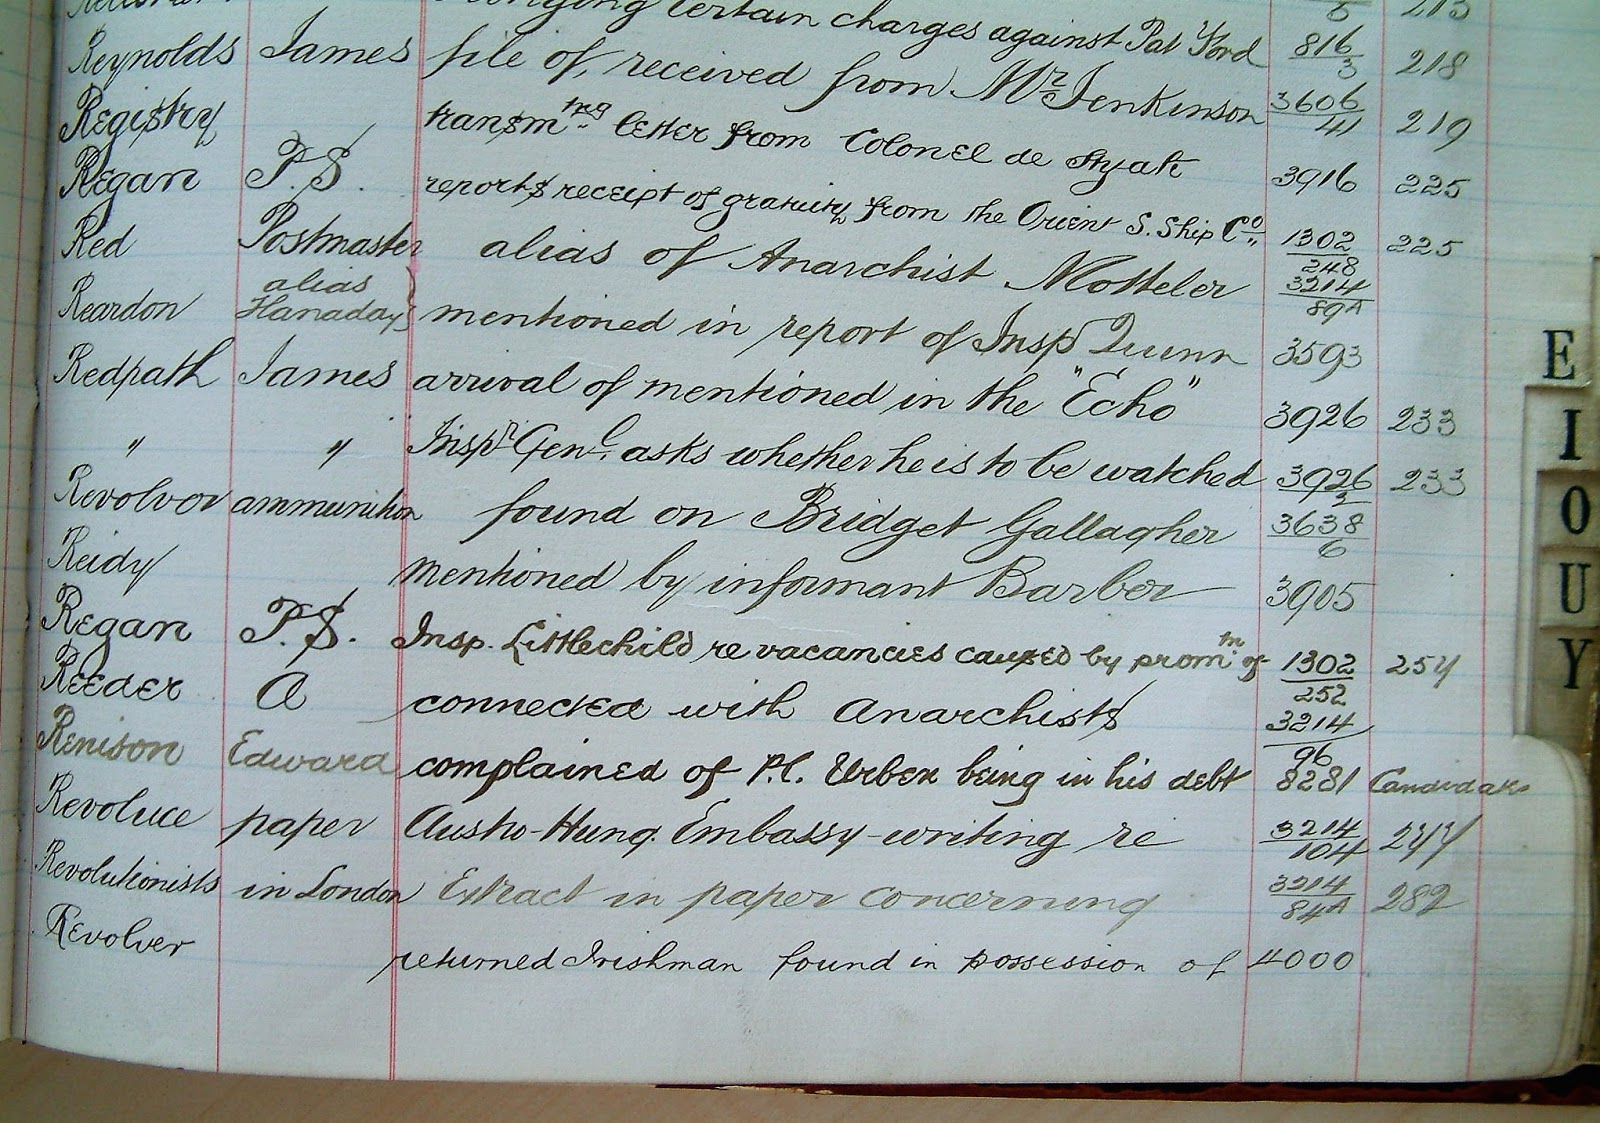 certain charges against Pat Ford 816/3 218
Reynolds James file of, received from Mr Jenkinson 3606/41 219
Registry transmtng letter from Colonel de 3916 225
Regan P.S. reports receipt of gratuity from the Orient S. Ship Co. 1302/248 225
Red Postmaster alias of Anarchist Motteler 3214/89A
Reardon alias Hanaday mentioned in report of Inspr Quinn 3593
Redpath James arrival of mentioned in the "Echo" 3926 233
" " Inspr Genl. asks whether he is to be watched 3926/2 233
Revolver ammunition found on Bridget Gallagher 3638/6
Reidy mentioned by informant Barber 3905
Regan P.S. Insp. Littlechild re vacancies caused by promtn of 1302/252 254
Reeder A connected with Anarchists 3214/96
Renison Edward complained of P.C. Urben being in his debt 8281 Candidate
Revoluce paper Austro-Hung. Embassy-writing re 3214/104 277
Revolutionists in London Extract in paper concerning 3214/84A 282
Revolver returned Irishman found in possession of 4000
E
I
O
U
Y